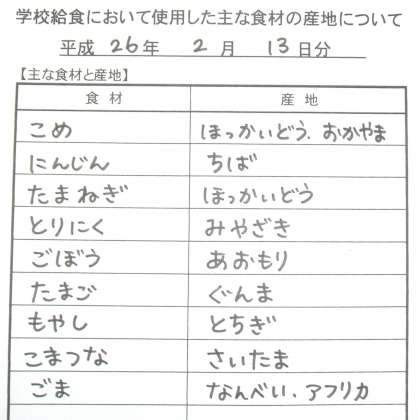 学校給食において使用した主な食材の産地について
平成 26 年 2 月 13 日分
【主な食材と産地】
食材 産地
こめ ほっかいどう．おかやま
にんじん ちば
たまねぎ ほっかいどう
とりにく みやざき
ごぼう あおもり
たまご ぐんま
もやし とちぎ
こまつな さいたま
ごま なんべい．アフリカ